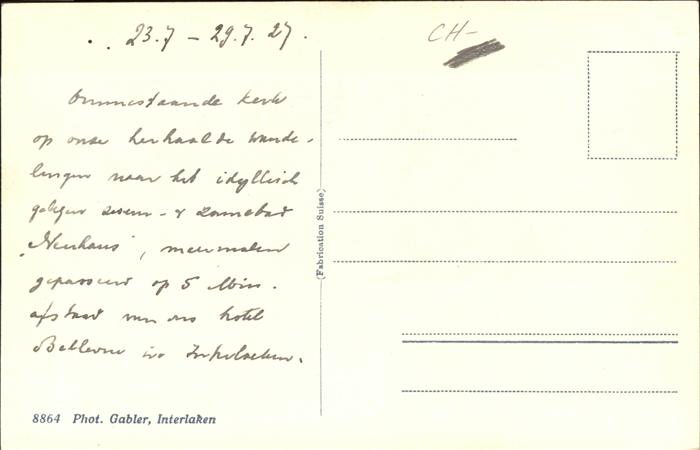 23.7 – 29.7.27.
CH-
Ommestaande kerk
op onze herhaalde wande-
lingen naar het idyllisch
gelegen zwem- & zonnebad
„Neuhaus", meermalen
gepasseerd op 5 Min.
afstand van ons hotel
Bellevue in Interlaken.
(Fabrication Suisse)
8864 Phot. Gabler, Interlaken